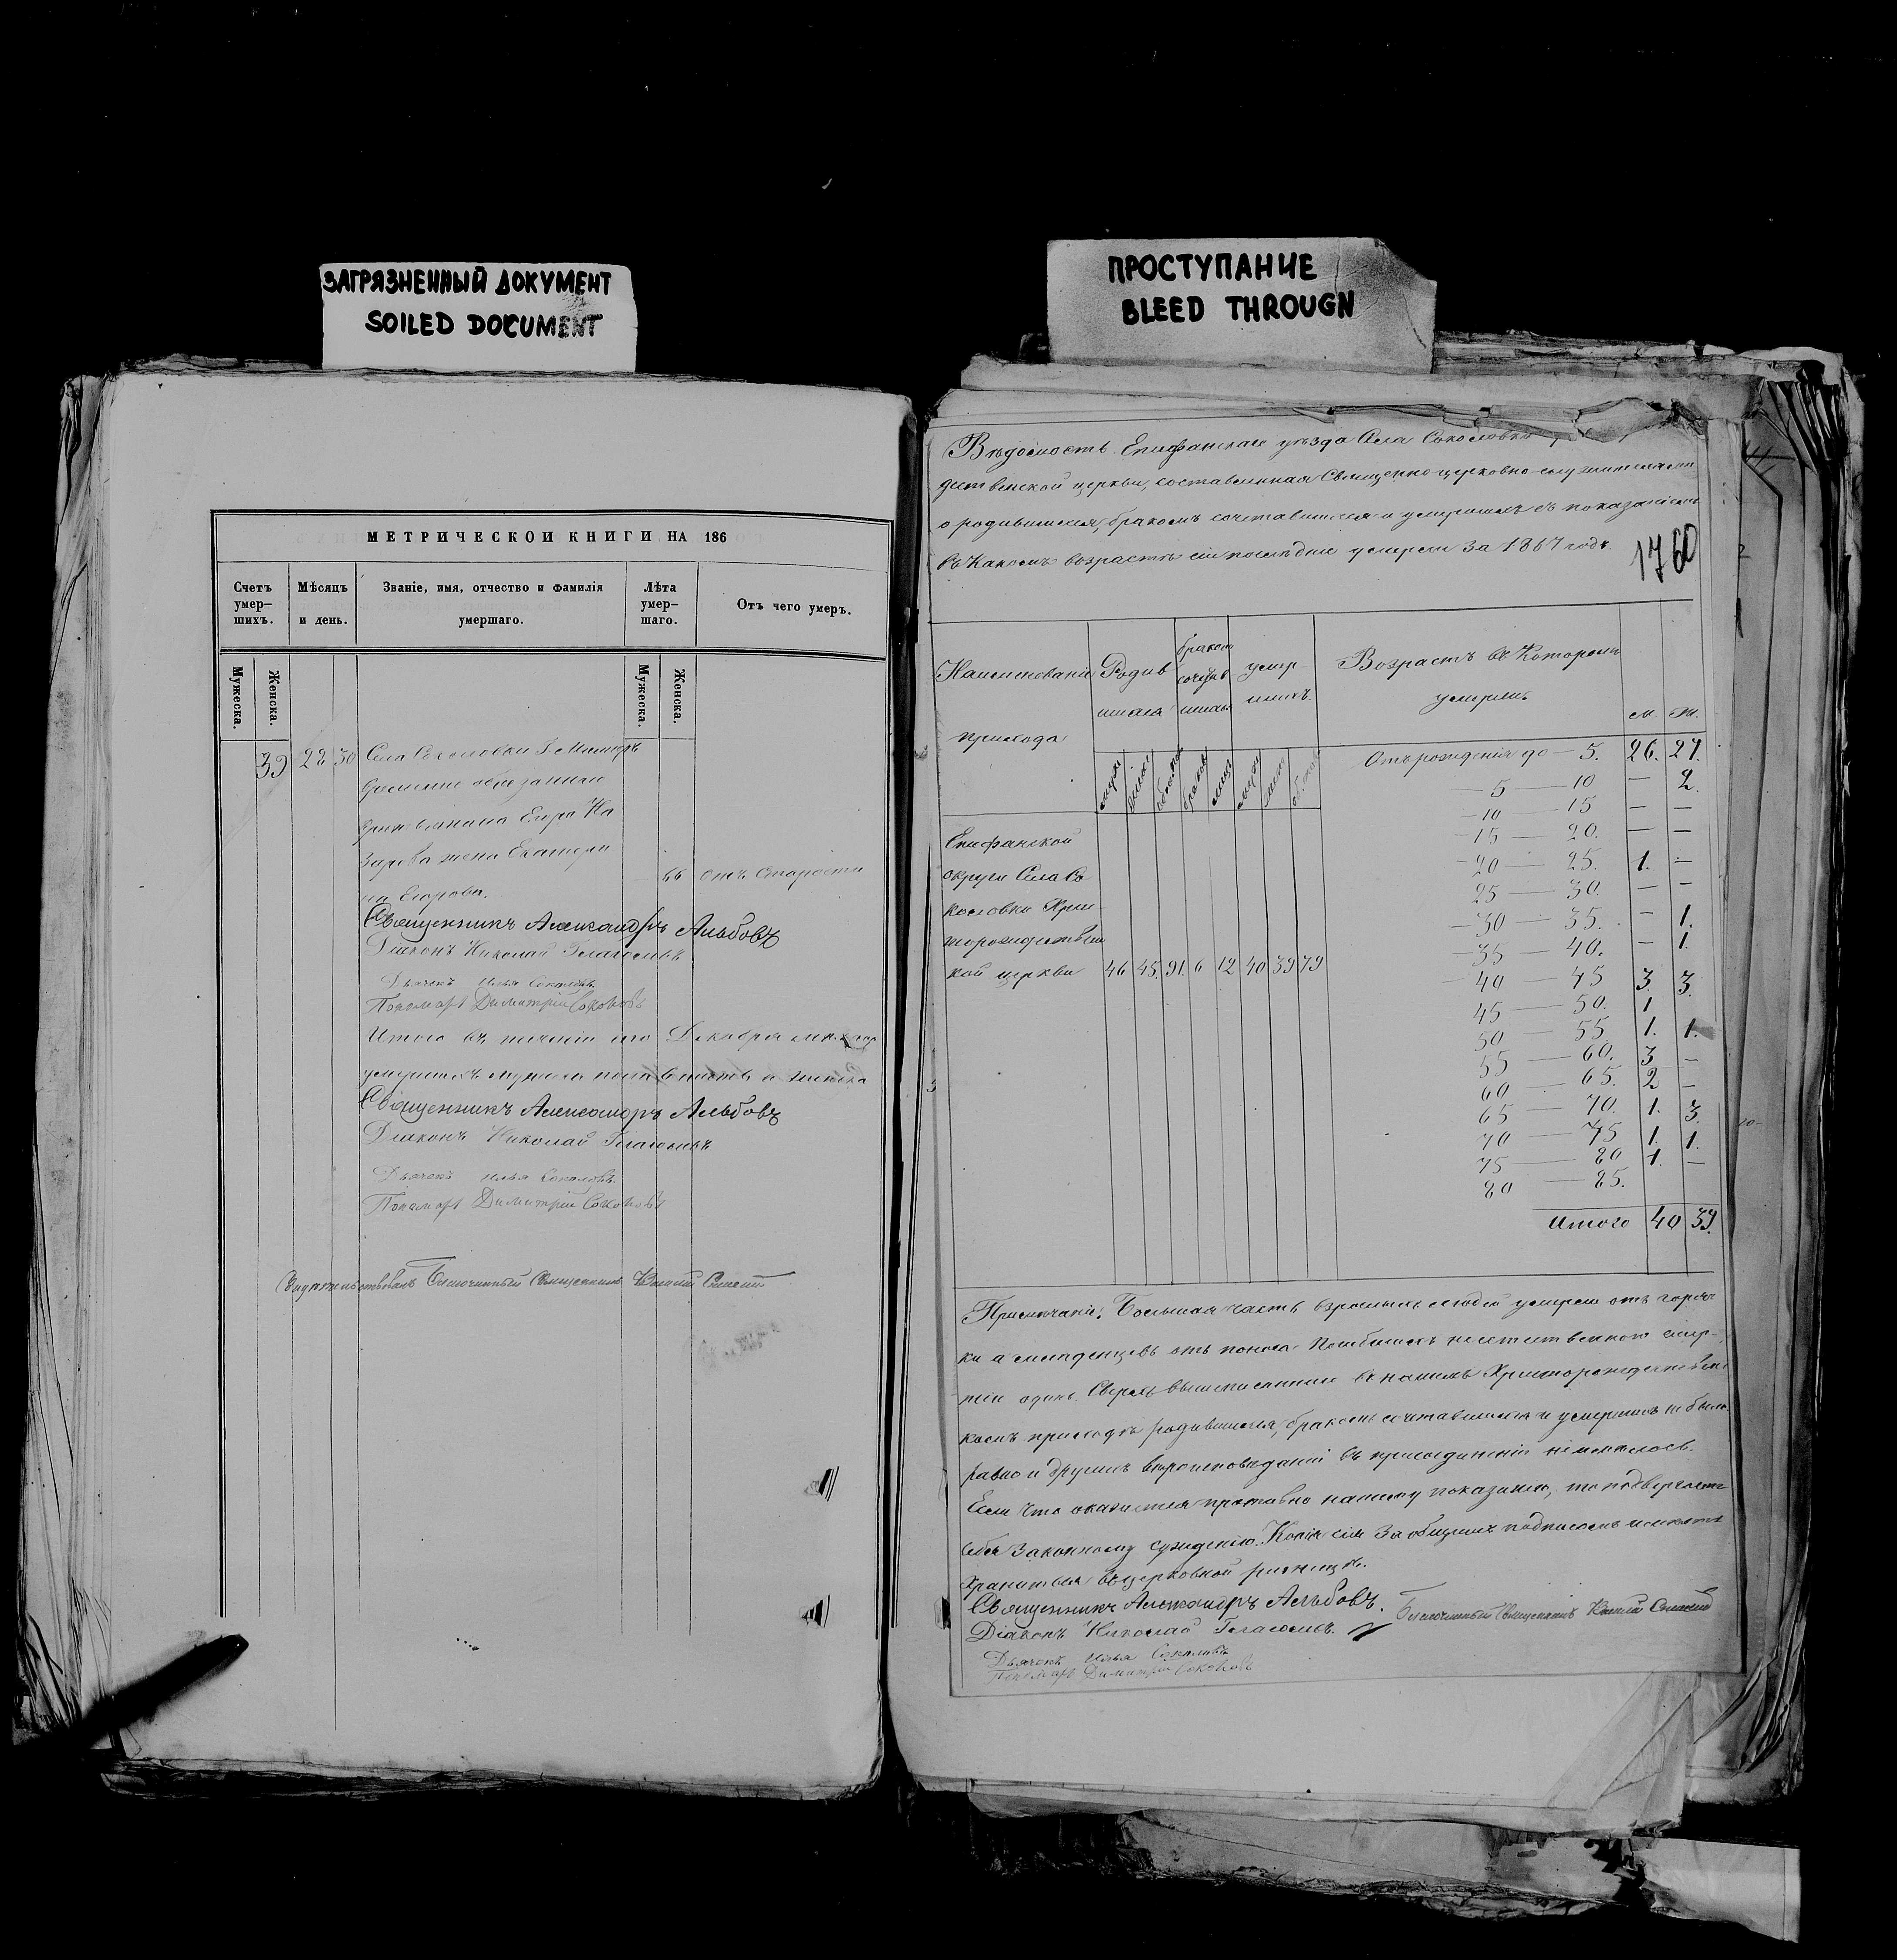 ЗАГРЯЗНЕННЫЙ ДОКУМЕНТ
SOILED DOCUMENT
МЕТРИЧЕСКОЙ КНИГИ НА 186
Счетъ умер–шихъ.
Мѣсяцъ и день.
Званіе, имя, отчество и фамилія умершаго.
Лѣта умер–шаго.
Отъ чего умеръ.
Мужеска.
Женска.
Мужеска.
Женска.
39 28 30 Села Соколовки Г.
крестьянина Егора На
зарова жена Екатери
на Егорова. 66 отъ старости
Священникъ Александръ Альбовъ
Діаконъ Николай Глаголевъ
Дьячекъ Илья Соколовъ
Пономарь Димитрій Соколовъ
Итого въ теченіи Декабря
умершихъ
Священникъ Александръ Альбовъ
Діаконъ Николай Глаголевъ
Дьячекъ Илья Соколовъ
Пономарь Димитрій Соколовъ
Свидѣтельствовалъ Благочинный Священникъ
ПРОСТУПАНИЕ
BLEED THROUGH
Вѣдомость Епифанскаго уѣзда Села Соколовки
дественской церкви, составленная Священно-церковно-служителями
о родившихся, бракомъ сочетавшихся и умершихъ съ показаніемъ
въ какомъ возрастѣ сіи послѣдніе умерли за 1867 годъ.
1760
Наименованіе прихода
Родив шихся
бракомъ сочетав шихся
умер-шихъ.
Возрастъ въ которомъ умерли
м. ж.
Отъ рожденія до — 5. 26. 27.
5 — 10 — 2.
10 — 15 — —
15 — 20. — —
20 — 25. 1. —
25 — 30. — —
30 — 35. — 1.
35 — 40. — 1.
40 — 45 3. 3.
45 — 50. 1
50 — 55 1. 1.
55 — 60. 3 —
60 — 65. 2 —
65 — 70. 1. 3.
70 — 75 1. 1.
75 — 80 1. —
80 — 85.
Итого 40 39.
Епифанской
округи Села Со
коловки Хри
сторождествен
кой церкви 46 45. 91. 6 12 40 39 79
Примѣчаніе: Большая часть взрослыхъ людей умерли отъ горяч
ки а младенцевъ отъ поноса. Погибшихъ неестественною смер-
тію одинъ. Сверхъ вышеписанныхъ въ нашемъ Христорождествен
комъ приходѣ родившихся, бракомъ сочетавшихся и умершихъ не было.
равно и другихъ вѣроисповѣданій въ присоединеніи неимѣлось.
Если что окажется противно нашему показанію, то подвергаемъ
себя законному сужденію. Копія сія за общимъ подписомъ имѣетъ
хранится въ церковной ризницѣ.
Священникъ Александръ Альбовъ.
Благочинный Священникъ
Діаконъ Николай Глаголевъ.
Дьячекъ Илья Соколовъ
Пономарь Димитрій Соколовъ